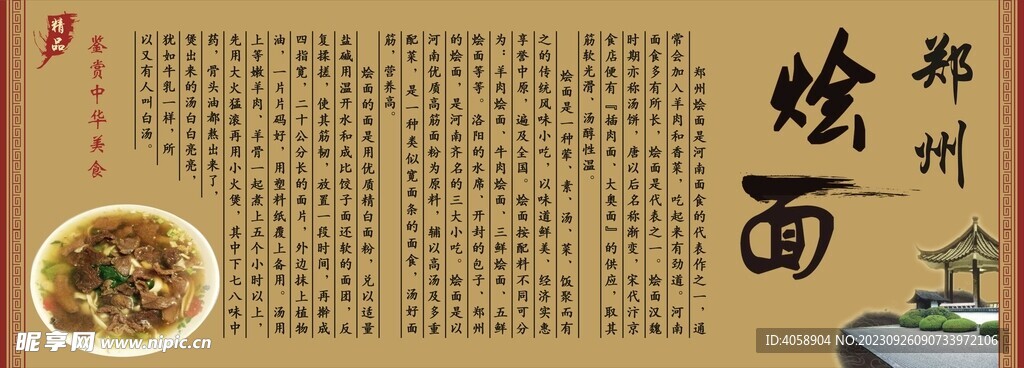 郑州
烩面
郑州烩面是河南面食的代表作之一，通
常会加入羊肉和香菜，吃起来有劲道。河南
面食多有所长，烩面是代表之一。烩面汉魏
时期亦称汤饼，唐以后名称渐变，宋代汴京
食店便有『插肉面、大奥面』的供应，取其
筋软光滑、汤醇性温。
烩面是一种荤、素、汤、菜、饭聚而有
之的传统风味小吃，以味道鲜美，经济实惠
享誉中原，遍及全国。烩面按配料不同可分
为：羊肉烩面、牛肉烩面、三鲜烩面、五鲜
烩面等等。洛阳的水席、开封的包子、郑州
的烩面，是河南齐名的三大小吃。烩面是以
河南优质高筋面粉为原料，辅以高汤及多重
配菜，是一种类似宽面条的面食，汤好面
筋，营养高。
烩面的面是用优质精白面粉，兑以适量
盐碱用温开水和成比饺子面还软的面团，反
复揉搓，使其筋韧，放置一段时间，再擀成
四指宽，二十公分长的面片，外边抹上植物
油，一片片码好，用塑料纸覆上备用。汤用
上等嫩羊肉、羊骨一起煮上五个小时以上，
先用大火猛滚再用小火煲，其中下七八味中
药，骨头油都熬出来了，
煲出来的汤白白亮亮，
犹如牛乳一样，所
以又有人叫白汤。
鉴赏中华美食
精品
昵享网 www.nipic.cn
ID:4058904 NO:20230926090733972106